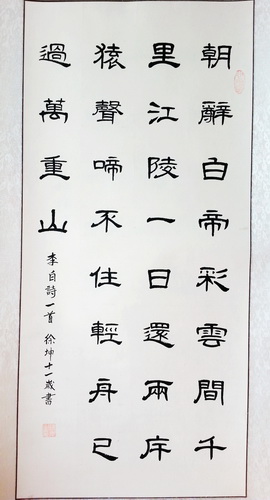 朝辭白帝彩雲間千
里江陵一日還兩岸
猿聲啼不住輕舟已
過萬重山
李白詩一首 徐坤十一歲書